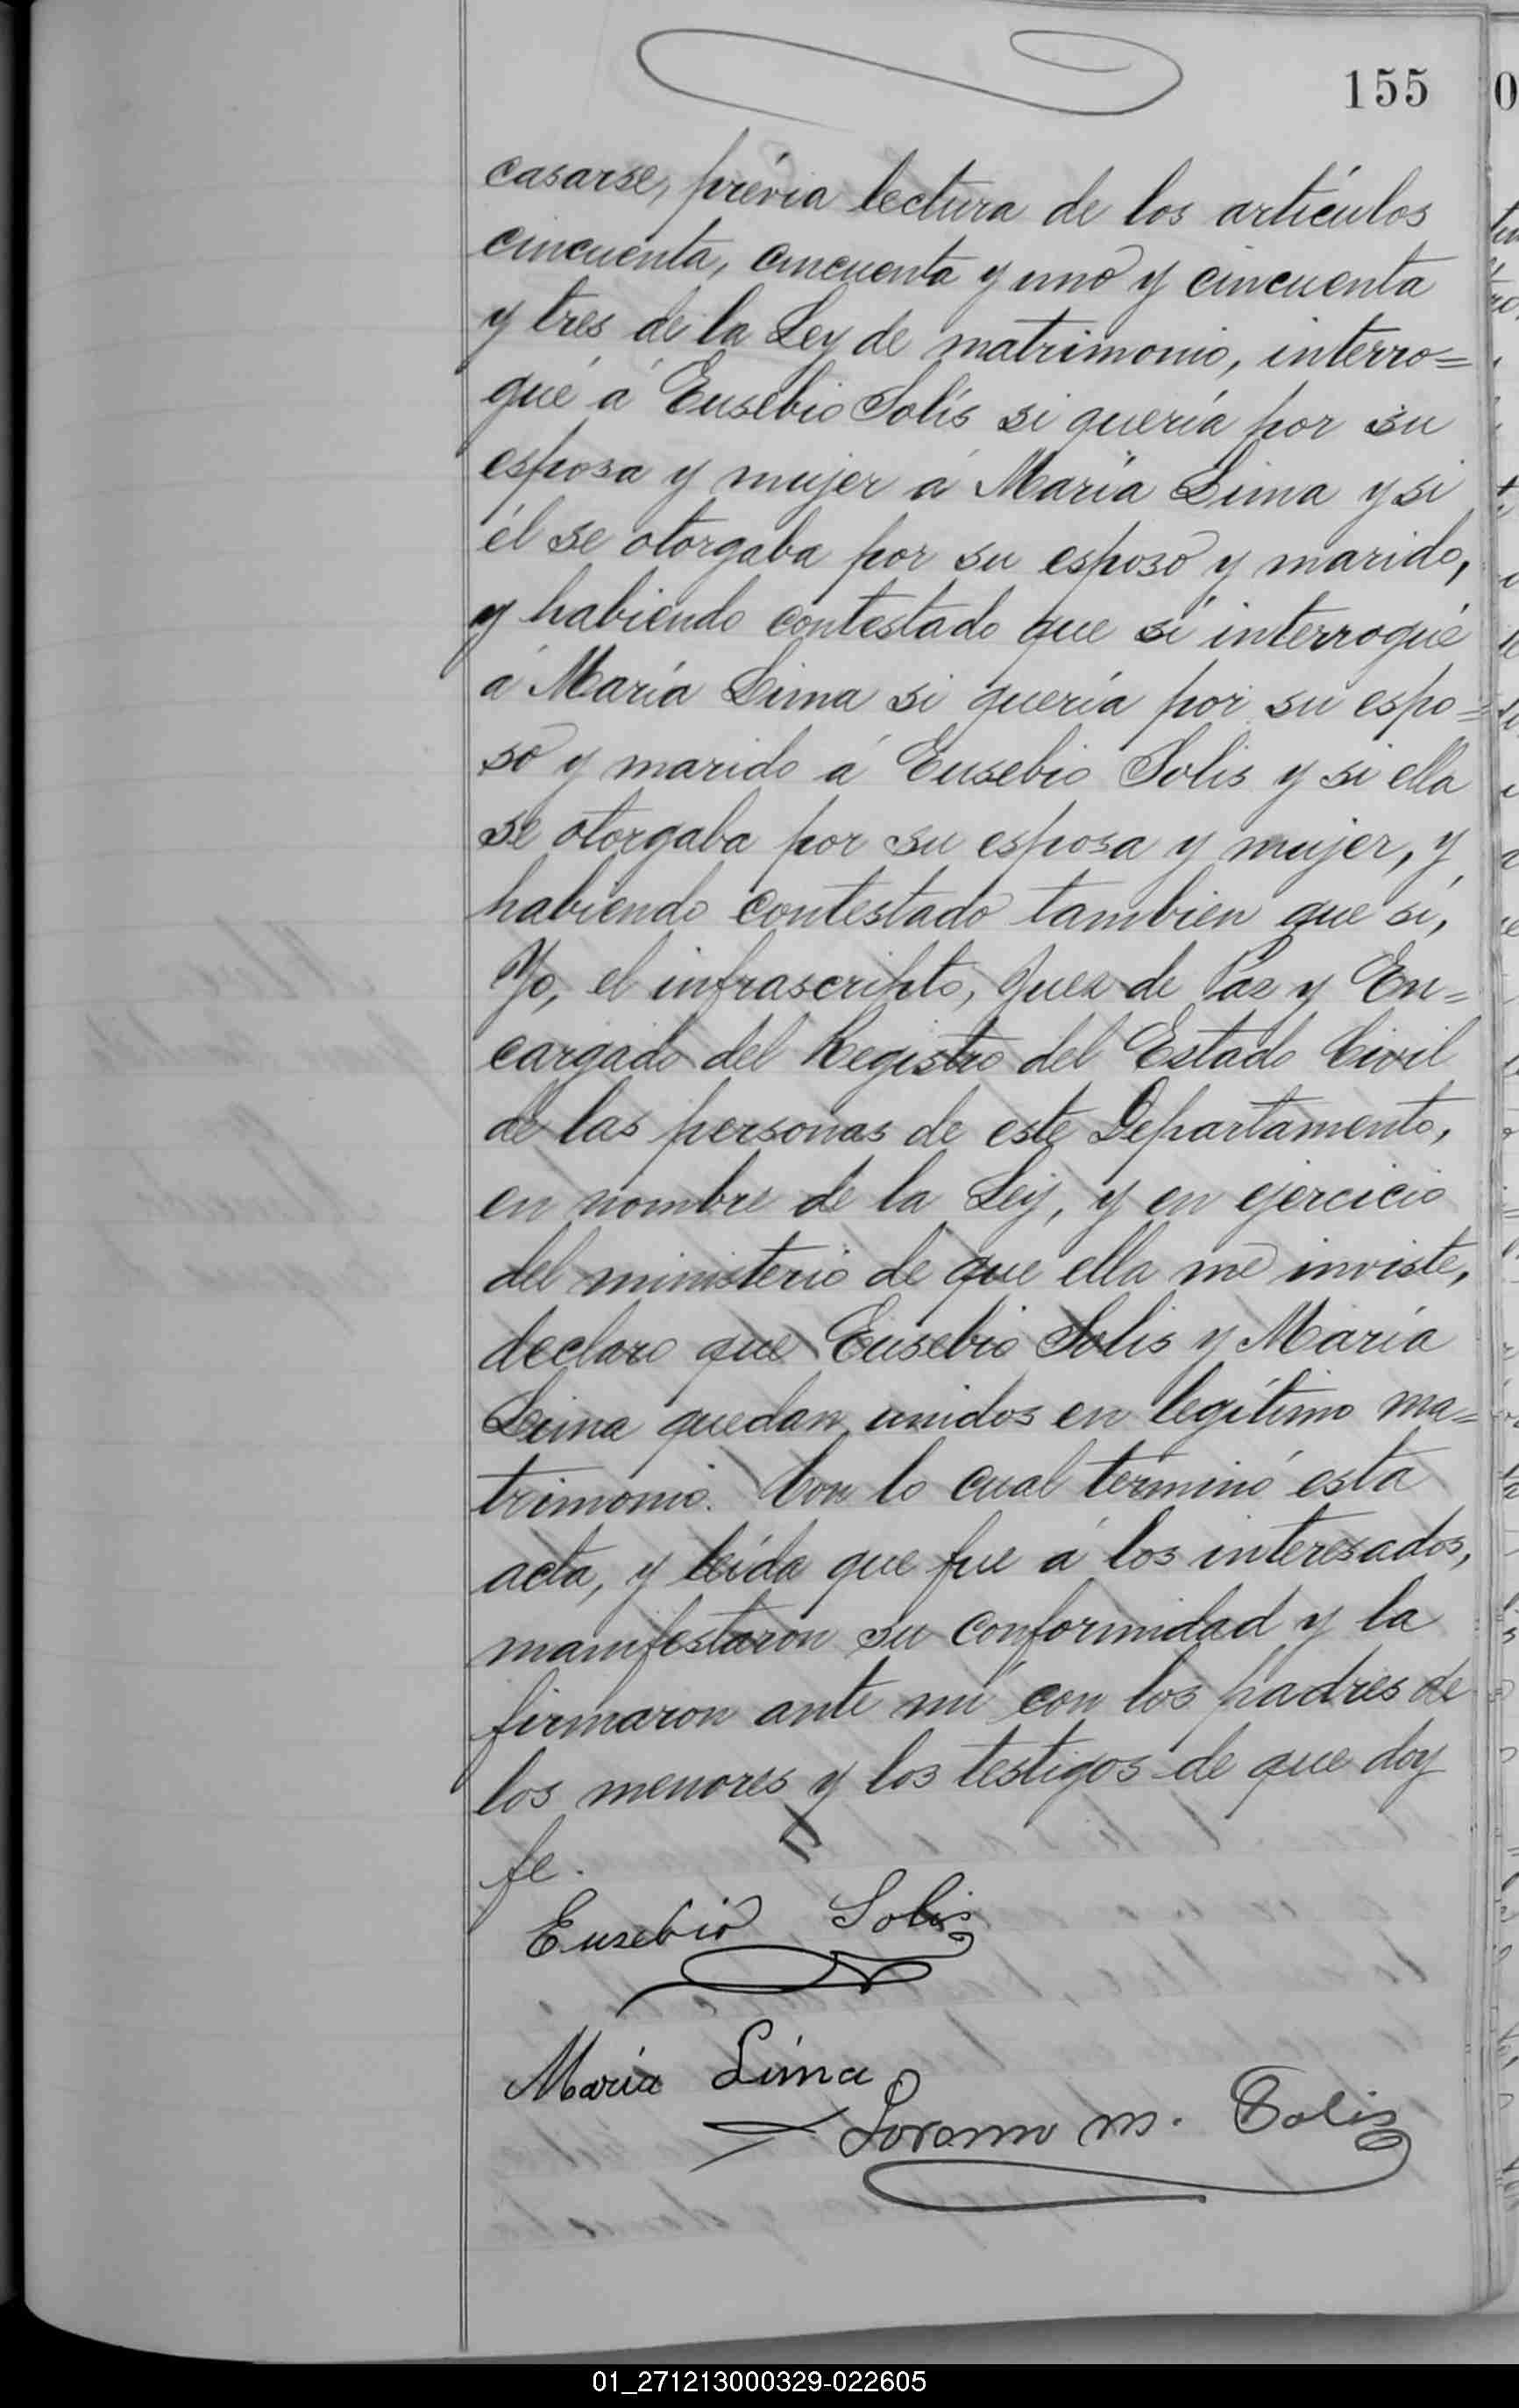 155
casarse, prévia lectura de los artículos
cincuenta, cincuenta y uno y cincuenta
y tres de la Ley de matrimonio, interro=
gué á Eusebio Solís si quería por su
esposa y mujer á María Lima y si
él se otorgaba por su esposo y marido,
y habiendo contestado que sí interrogué
á María Lima si quería por su espo=
so y marido á Eusebio Solis y si ella
se otorgaba por su esposa y mujer, y
habiendo contestado tambien que sí,
Yo, el infrascripto, Juez de Paz y En=
cargado del Registro del Estado Civil
de las personas de este Departamento,
en nombre de la Ley, y en ejercicio
del ministerio de que ella me inviste,
declaro que Eusebio Solis y María
Lima quedan unidos en legítimo ma=
trimonio. Con lo cual terminó esta
acta, y leída que fue á los interesados,
manifestaron su conformidad y la
firmaron ante mí con los padres de
los menores y los testigos de que doy
fe.
Eusebio Solis
María Lima
M. Solis
01_271213000329-022605